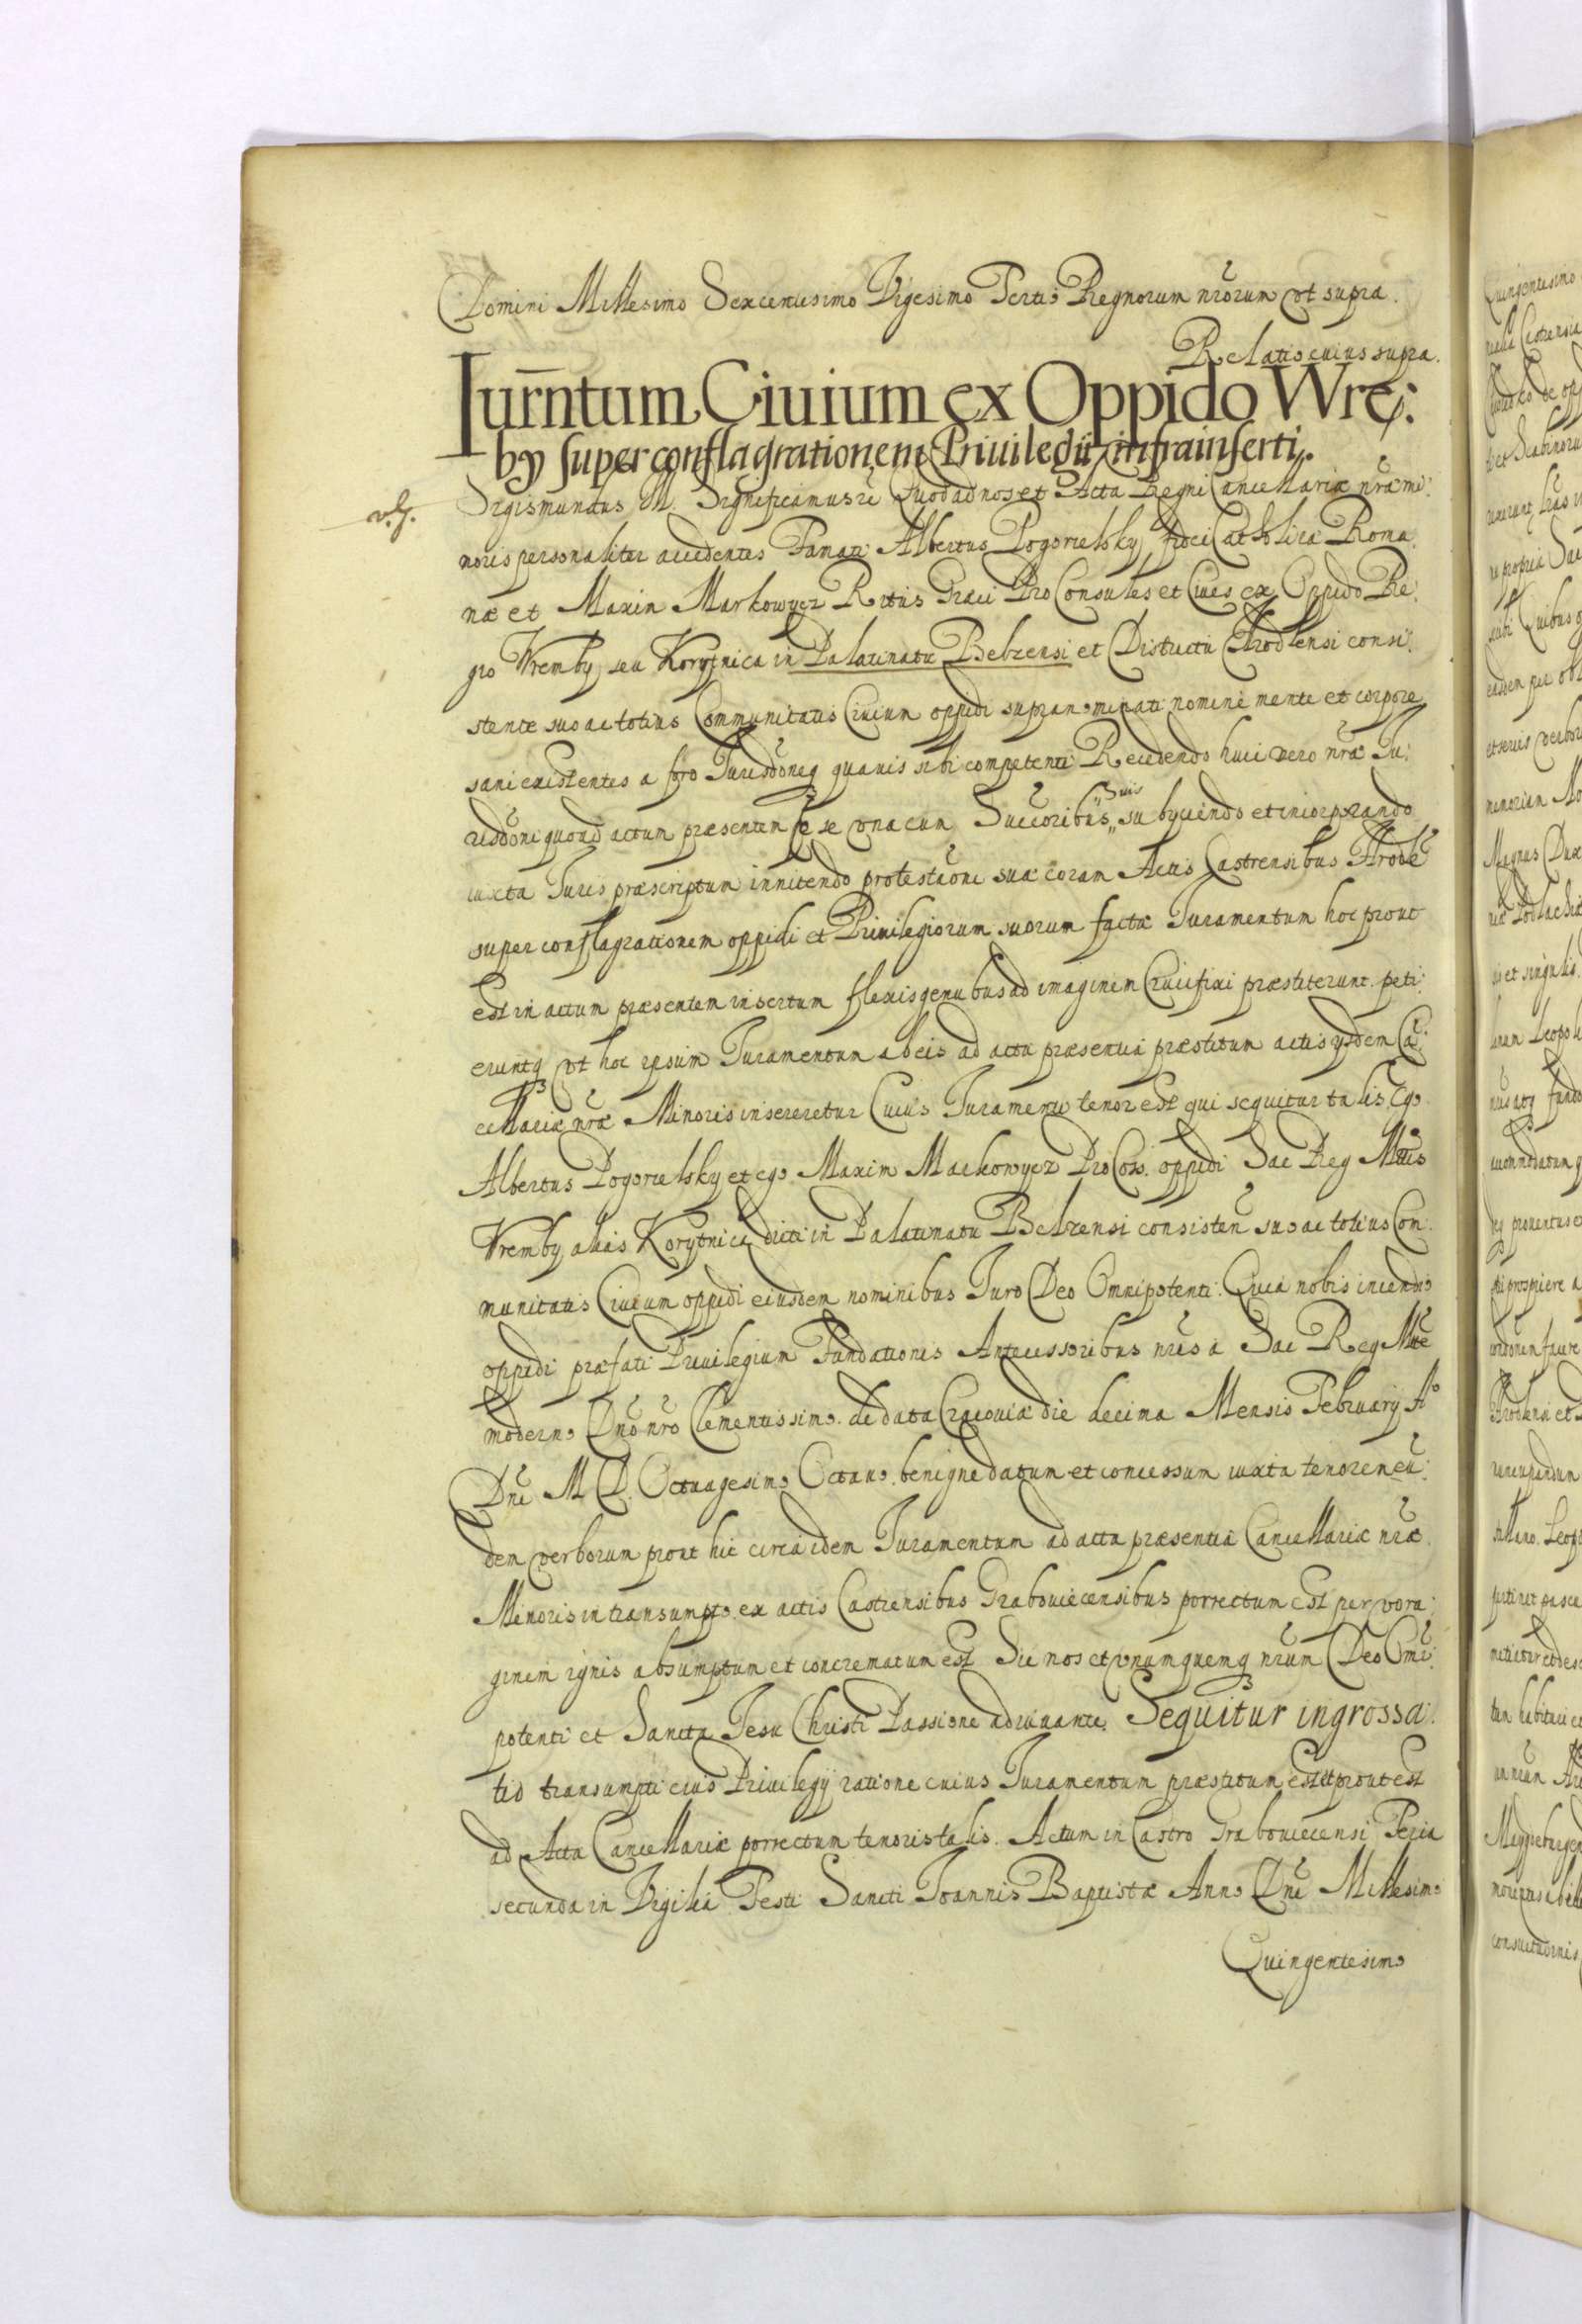 Domini Millesimo Sexcentesimo Vigesimo Tertio Regnorum nrorum vt supra.
Relatio cuius supra.
Iurntum Ciuium ex Oppido Wre:
by super conflagrationem Priuilegii infrainserti.
Sigismundus III. Significamus re Quod ad nos et Acta Regni Cancellariæ nræ mi:
noris personaliter accedentes Famati Albertus Pogorzelsky fidei Catholicæ Roma:
næ et Maxim Markowycz Ritus Græci Pro Consules et Ciues ex Oppido Re:
gio Wremby seu Korytnica in Palatinatu Belzensi et Districtu Hrodlensi consi:
stente suo ac totius Communitatis Ciuium oppidi supranominati nomine mente et corpore
sani existentes a foro Jurisdõneq quauis sibi competenti Recedendo huic vero nræ Ju:
risdõni quoad actum præsentem se se vna cum Succoribus „suis„ subyciendo et incorporando
iuxta Juris præscriptum innitendo protestaõni suæ coram Actis Castrensibus Hrodł
super conflagrationem oppidi et Priuilegiorum suorum factæ Juramentum hoc prout
est in actum præsentem insertum flexis genubus ad imaginem Crucifixi præstiterunt. peti:
eruntq vt hoc ipsum Juramentum ab eis ad acta præsentia præstitum actis ysdem Cã:
cellariæ nræ Minoris insereretur Cuius Juramenti tenor est qui sequitur talis. Ego
Albertus Pogorzelsky et ego Maxim Markowycz Pro Cons. oppidi Sac Reg Mttis
Wremby alias Korytnica dicti in Palatinatu Belzensi consisteñ suo ac totius Com
munitatis Ciuium oppidi eiusdem nominibus Juro Deo Omnipotenti. Quia nobis incendio
oppidi præfati Priuilegium Fundationis Antecessoribus nris a Sac Reg Mtte
moderno Dno nro Clementissimo de data Cracouiæ die decima Mensis February Aº
Dni M D. Octuagesimo Octauo benigne datum et concessum iuxta tenorem eũ:
dem verborum prout hic circa idem Juramentum ad acta præsentia Cancellariæ nræ
Minoris in transumpto ex actis Castrensibus Grabouiecensibus porrectum est per vora:
ginem ignis absumptum et concrematum est Sic nos et vnumquemq nrum Deo Omi:
potenti et Sancta Jesu Christi Passione adiuuante. Sequitur ingrossa:
tio transumpti eius Priuilegij ratione cuius Juramentum præstitum est et prout est
ad Acta Cancellariæ porrectum tenoris talis. Actum in Castro Grabouiecensi Feria
secunda in Vigilia Festi Sancti Joannis Baptistæ Anno Dni Millesimo
Quingentesimo